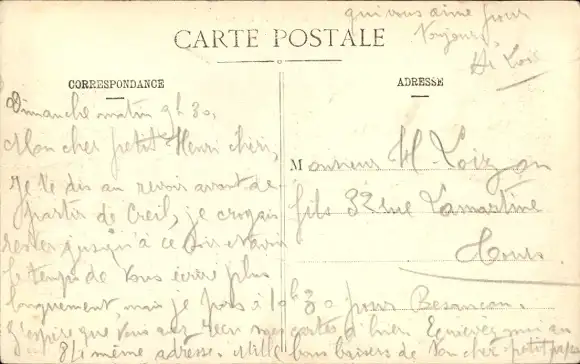 qui vous aime pour
toujours,
H Loiz
CARTE POSTALE
CORRESPONDANCE
ADRESSE
Dimanche matin 9h 30,
Mon cher petit Henri chéri,
Je te dis au revoir avant de
partir de Creil, je croyais
rester jusqu'à ce soir et avoir
le temps de vous écrire plus
longuement, mais je pars à 10h 30 pour Besançon.
J'espère que vous avez reçu mes cartes d'hier. Ecrivez moi au
même adresse. Mille bons baisers de ton cher petit papa
Monsieur H Loizon
fils 32 rue Lamartine
Tours